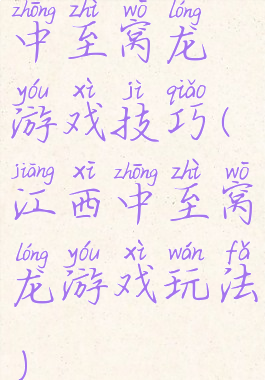 zhōng zhì wō lóng
中至窝龙
yóu xì jì qiǎo
游戏技巧(
jiāng xī zhōng zhì wō
江西中至窝
lóng yóu xì wán fǎ
龙游戏玩法
)